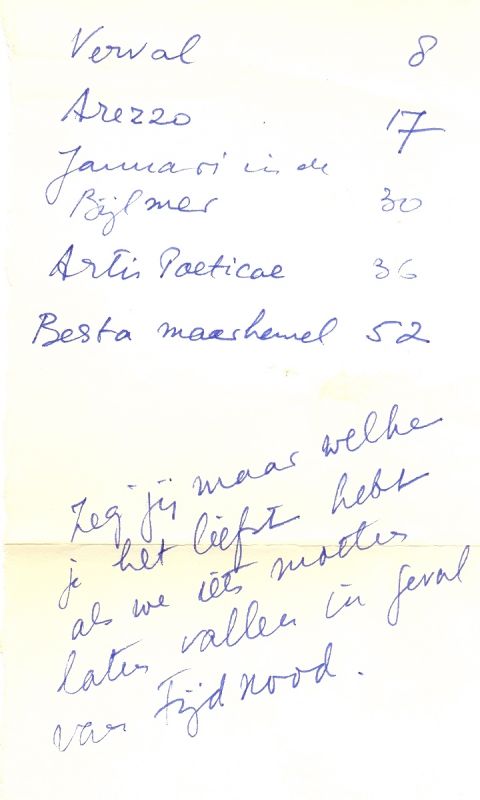 Verval 8
Arezzo 17
Januari in de
Bijlmer 30
Artis Poeticae 36
Besta maar hemel 52
Zeg jij maar welke
je het liefst hebt
als we iets moeten
laten vallen in geval
van tijdnood.